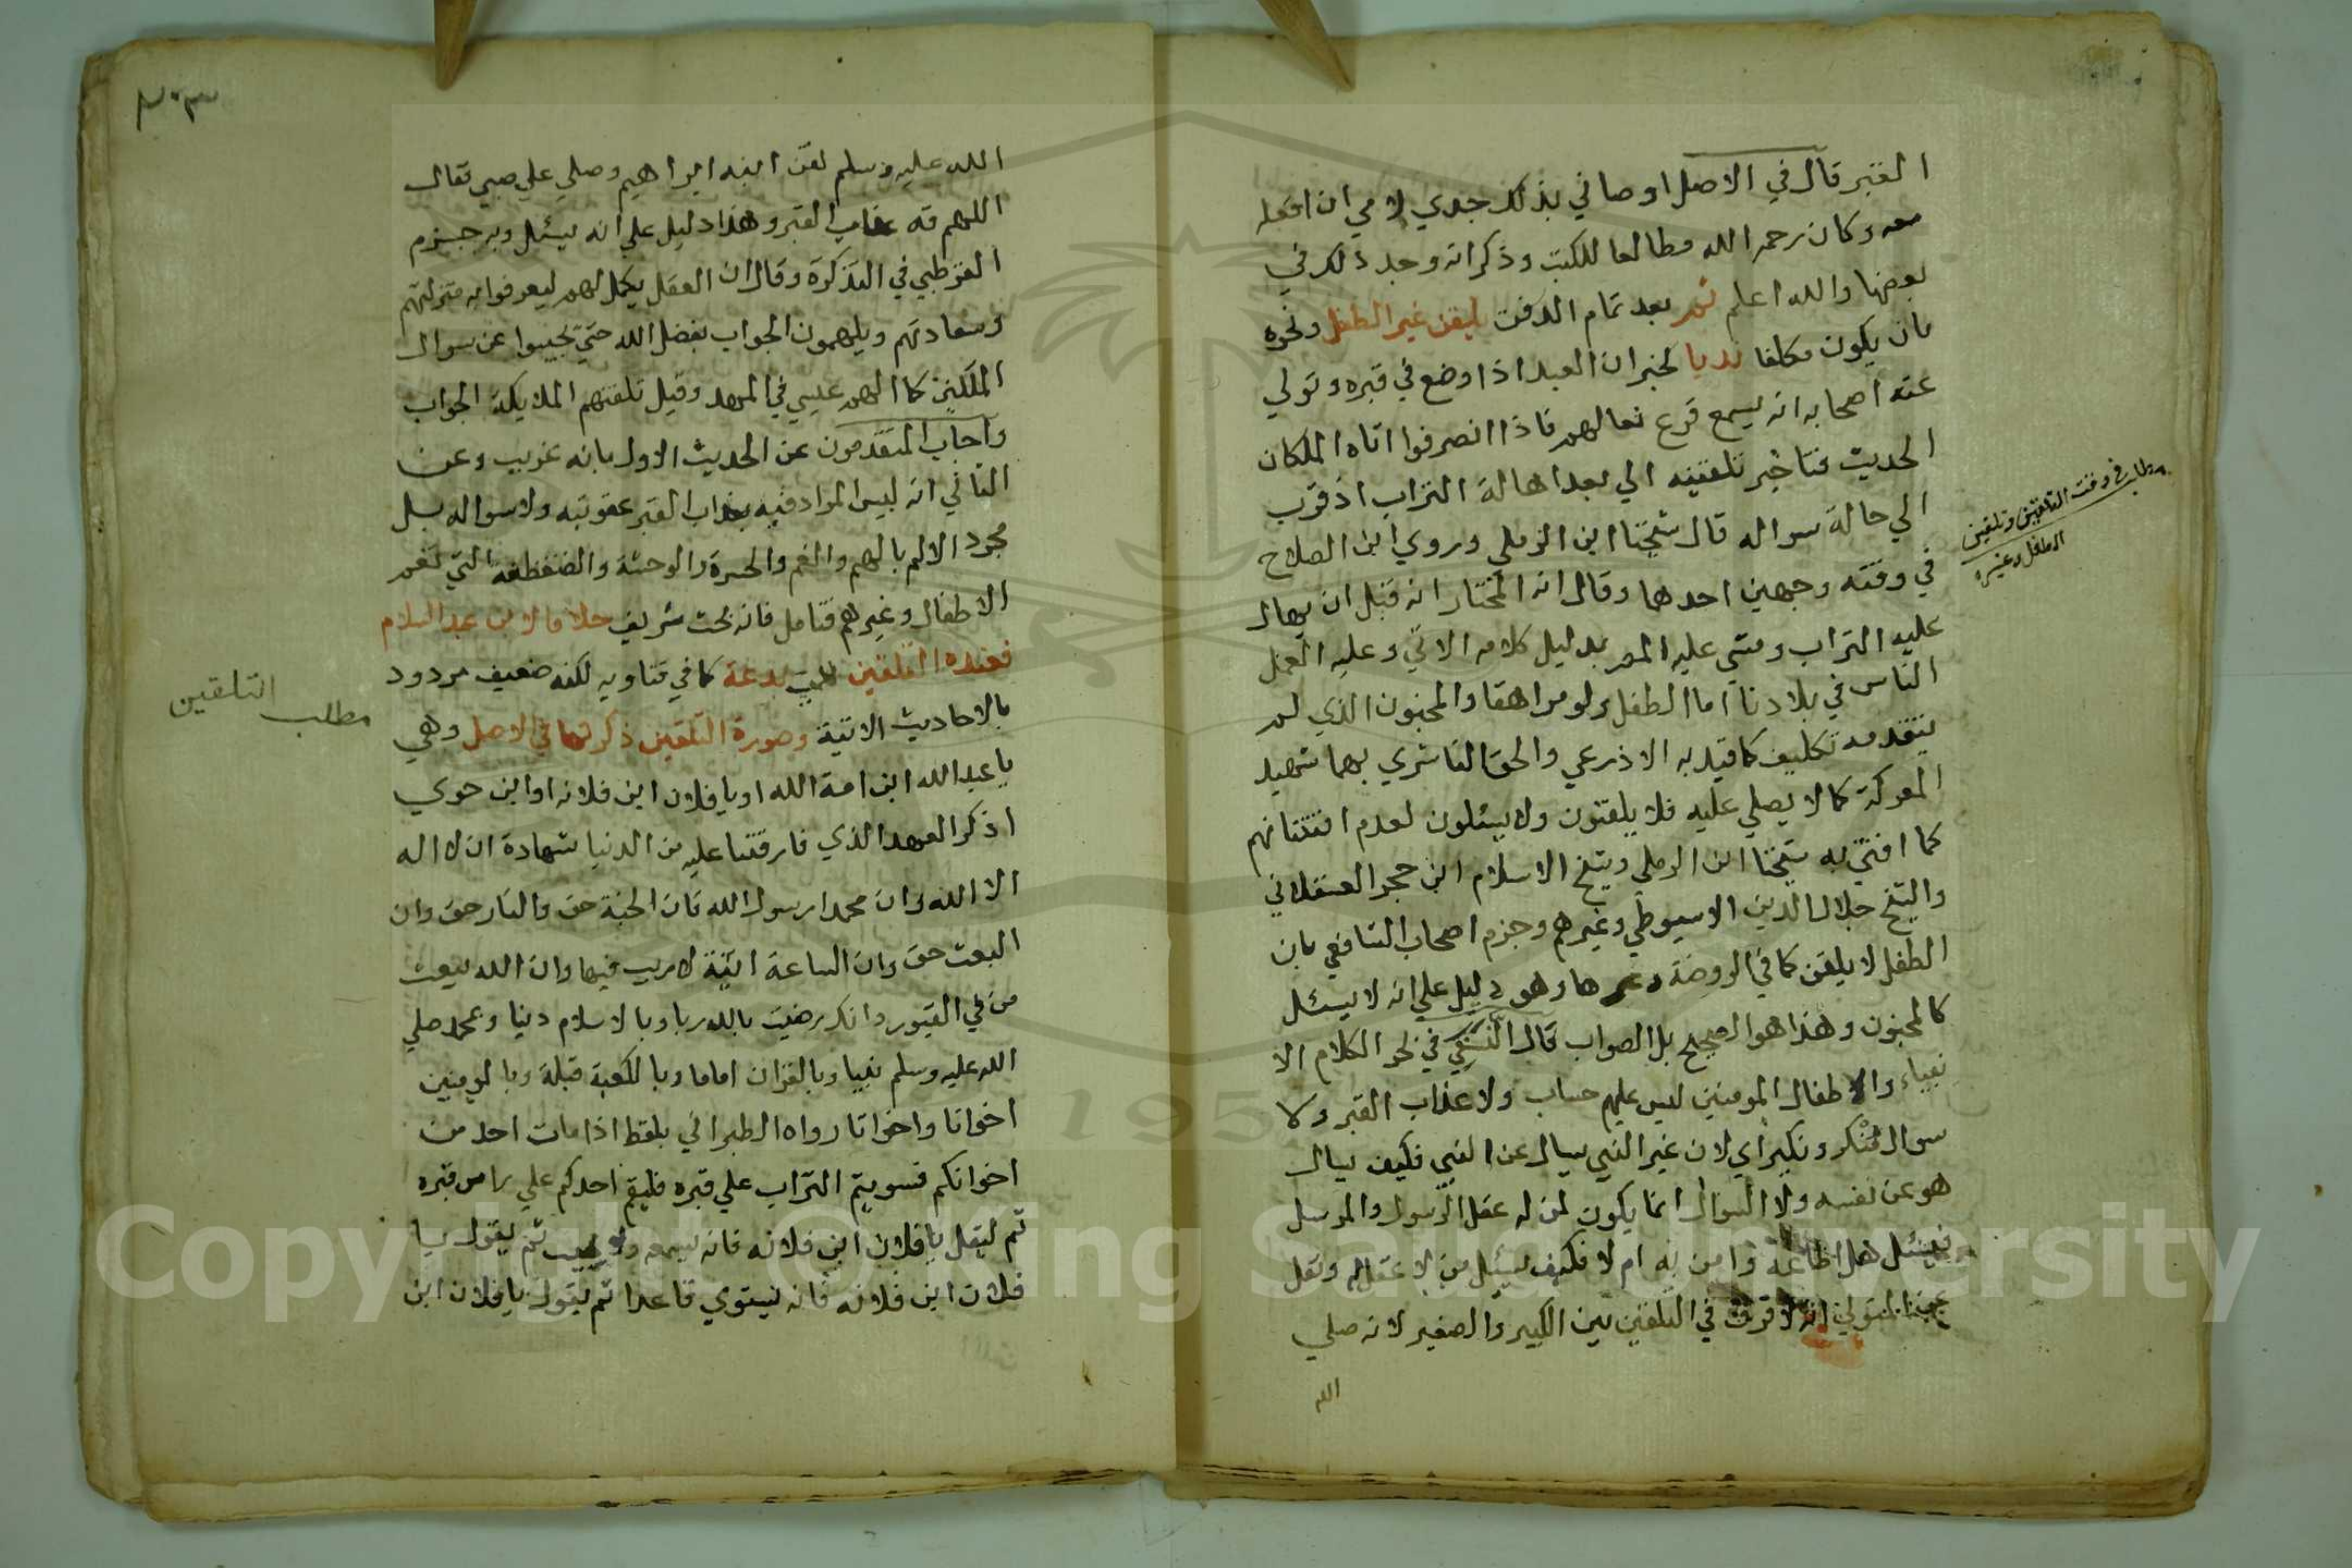 القبر قال في الاصل اوصاني بذلك جدي لامي ان افعله
معه وكان رحمه الله مطالعا للكتب وذكر انه وجد ذلك في
بعضها والله اعلم ثم بعد تمام الدفن يلقن غير الطفل ونحوه
بان يكون مكلفا ندبا لخبر ان العبد اذا وضع في قبره وتولي
عنه اصحابه انه يسمع قرع نعالهم فاذا انصرفوا اتاه الملكان
الحديث فتاخير تلقينه الي بعد اهالة التراب اذ قرب
الي حالة سواله قال شيخنا ابن الرملي وروي ابن الصلاح
في وقته وجهين احدهما وقال انه المختار انه قبل ان يهال
عليه التراب ومشي عليه المم بدليل كلامه الاتي وعليه العمل
الناس في بلادنا اما الطفل ولو مراهقا والمجنون الذي لم
يتقدمه تكليف كما قيد به الاذرعي والحق الناشري بهما شهيد
المعركة كما لا يصلي عليه فلا يلقنون ولا يسئلون لعدم افتتانهم
كما افتي به شيخنا ابن الرملي وشيخ الاسلام ابن حجر العسقلاني
والشيخ جلال الدين الاسيوطي وغيرهم وجزم اصحاب الشافعي بان
الطفل لا يلقن كما في الروضة وغيرها وهو دليل علي انه لا يسئل
كالمجنون وهذا هو الصحيح بل الصواب قال النسفي في بحر الكلام الا
نبياء والاطفال المومنين ليس عليهم حساب ولا عذاب القبر ولا
سوال منكر ونكير اي لان غير النبي يسال عن النبي فكيف يسال
هو عن نفسه ولان السوال انما يكون لمن له عقل الرسول والمرسل
فيسئل هل اطاعه وامن به ام لا فكيف يسئل من لا عقل له ونقل
عن المتولي انه لا فرق في التلقين بين الكبير والصغير لانه صلي
الله
مطلب في وقت التلقين وتلقين
الطفل وغيره
٢٠٣
الله عليه وسلم لقن ابنه ابراهيم وصلي علي صبي فقال
اللهم قه عذاب القبر وهذا دليل علي انه يسئل وبه جزم
القرطبي في التذكرة وقال ان العقل يكمل لهم ليعرفوا به منزلتهم
وسعادتهم ويلهمون الجواب بفضل الله حتي يجيبوا عن سوال
الملكين كما الهم عيسي في المهد وقيل تلقنهم الملايكة الجواب
واجاب المتقدمون عن الحديث الاول بانه غريب وعن
الثاني انه ليس المراد فيه بعذاب القبر عقوبته ولا سواله بل
مجرد الالم بالهم والغم والحسرة والوحشة والضغطة التي تعم
الاطفال وغيرهم فتامل فانه بحث شريف خلافا لابن عبد السلام
فعنده التلقين بدعة كما في فتاويه لكنه ضعيف مردود
بالاحاديث الاتية وصورة التلقين ذكرتها في الاصل وهي
يا عبد الله ابن امة الله او يا فلان ابن فلانه او ابن حوي
اذكر العهد الذي فارقتنا عليه من الدنيا شهادة ان لا اله
الا الله وان محمدا رسول الله وان الجنة حق والنار حق وان
البعث حق وان الساعة اتية لا ريب فيها وان الله يبعث
من في القبور وانك رضيت بالله ربا وبالاسلام دينا وبمحمد صلي
الله عليه وسلم نبيا وبالقران اماما وبالكعبة قبلة وبالمومنين
اخوانا واخوانا رواه الطبراني بلفظ اذا مات احد من
اخوانكم فسويتم التراب علي قبره فليقم احدكم علي راس قبره
ثم ليقل يا فلان ابن فلانه فانه يسمعه ولا يجيب ثم يقول يا
فلان ابن فلانه فانه يستوي قاعدا ثم يقول يا فلان ابن
مطلب التلقين
Copyright © King Saud University
195